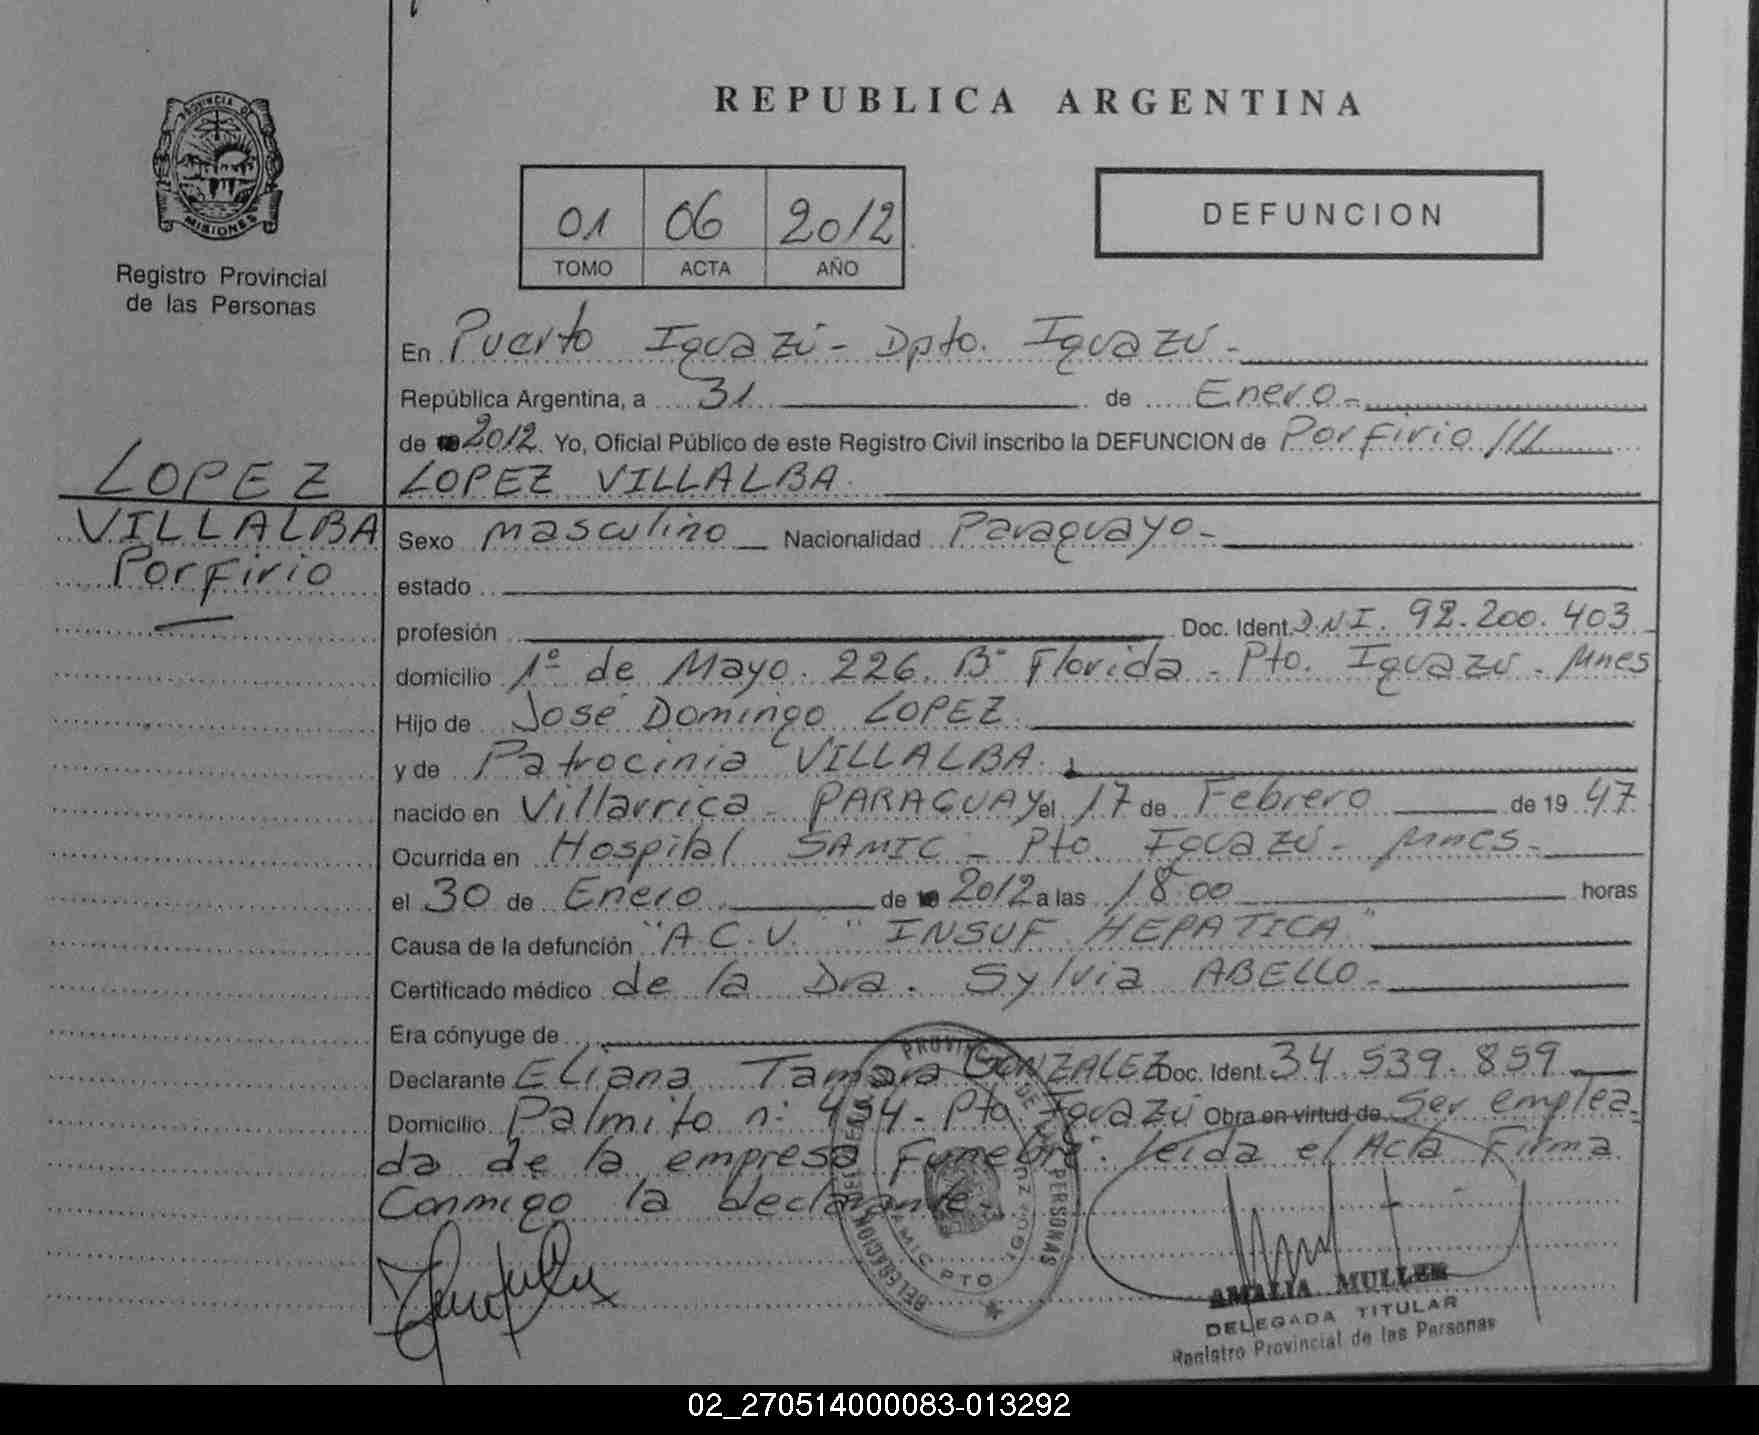 REPUBLICA ARGENTINA
PROVINCIA DE
MISIONES
Registro Provincial
de las Personas
01 06 2012
TOMO ACTA AÑO
DEFUNCION
En Puerto Iguazú - Dpto. Iguazú -
República Argentina, a 31 de Enero -
de 2012 Yo, Oficial Público de este Registro Civil inscribo la DEFUNCION de Porfirio ///
LOPEZ VILLALBA
LOPEZ
VILLALBA
Porfirio
Sexo masculino Nacionalidad Paraguayo -
estado
profesión Doc. Ident. DNI. 92.200.403
domicilio 1º de Mayo. 226. Bº Florida - Pto. Iguazú - Mnes
Hijo de José Domingo LOPEZ
y de Patrocinia VILLALBA.
nacido en Villarrica - PARAGUAY el 17 de Febrero de 19 47
Ocurrida en Hospital SAMIC - Pto. Iguazú - Mnes -
el 30 de Enero de 2012 a las 18:00 horas
Causa de la defunción "A.C.V. "INSUF. HEPATICA"
Certificado médico de la Dra. Sylvia ABELLO -
Era cónyuge de
Declarante Eliana Tamara GONZALEZ Doc. Ident. 34.539.859
Domicilio Palmito nº 454 - Pto. Iguazú Obra en virtud de Ser emplea-
da de la empresa Funebre: leida el Acta Firma
Conmigo la declarante.
PROVINCIAL DE LAS PERSONAS
DELEGACION
SAMIC PTO
AMALIA MULLER
DELEGADA TITULAR
Registro Provincial de las Personas
02_270514000083-013292